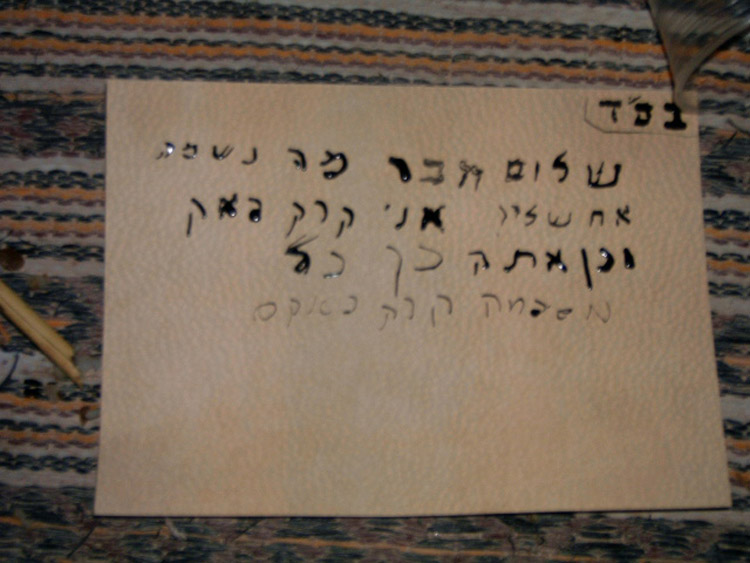 בס"ד
שלום אבר מה נשמה
אח שלי אני קרק פאק
וכן אתה כך כל
משפחה קרק פאקס